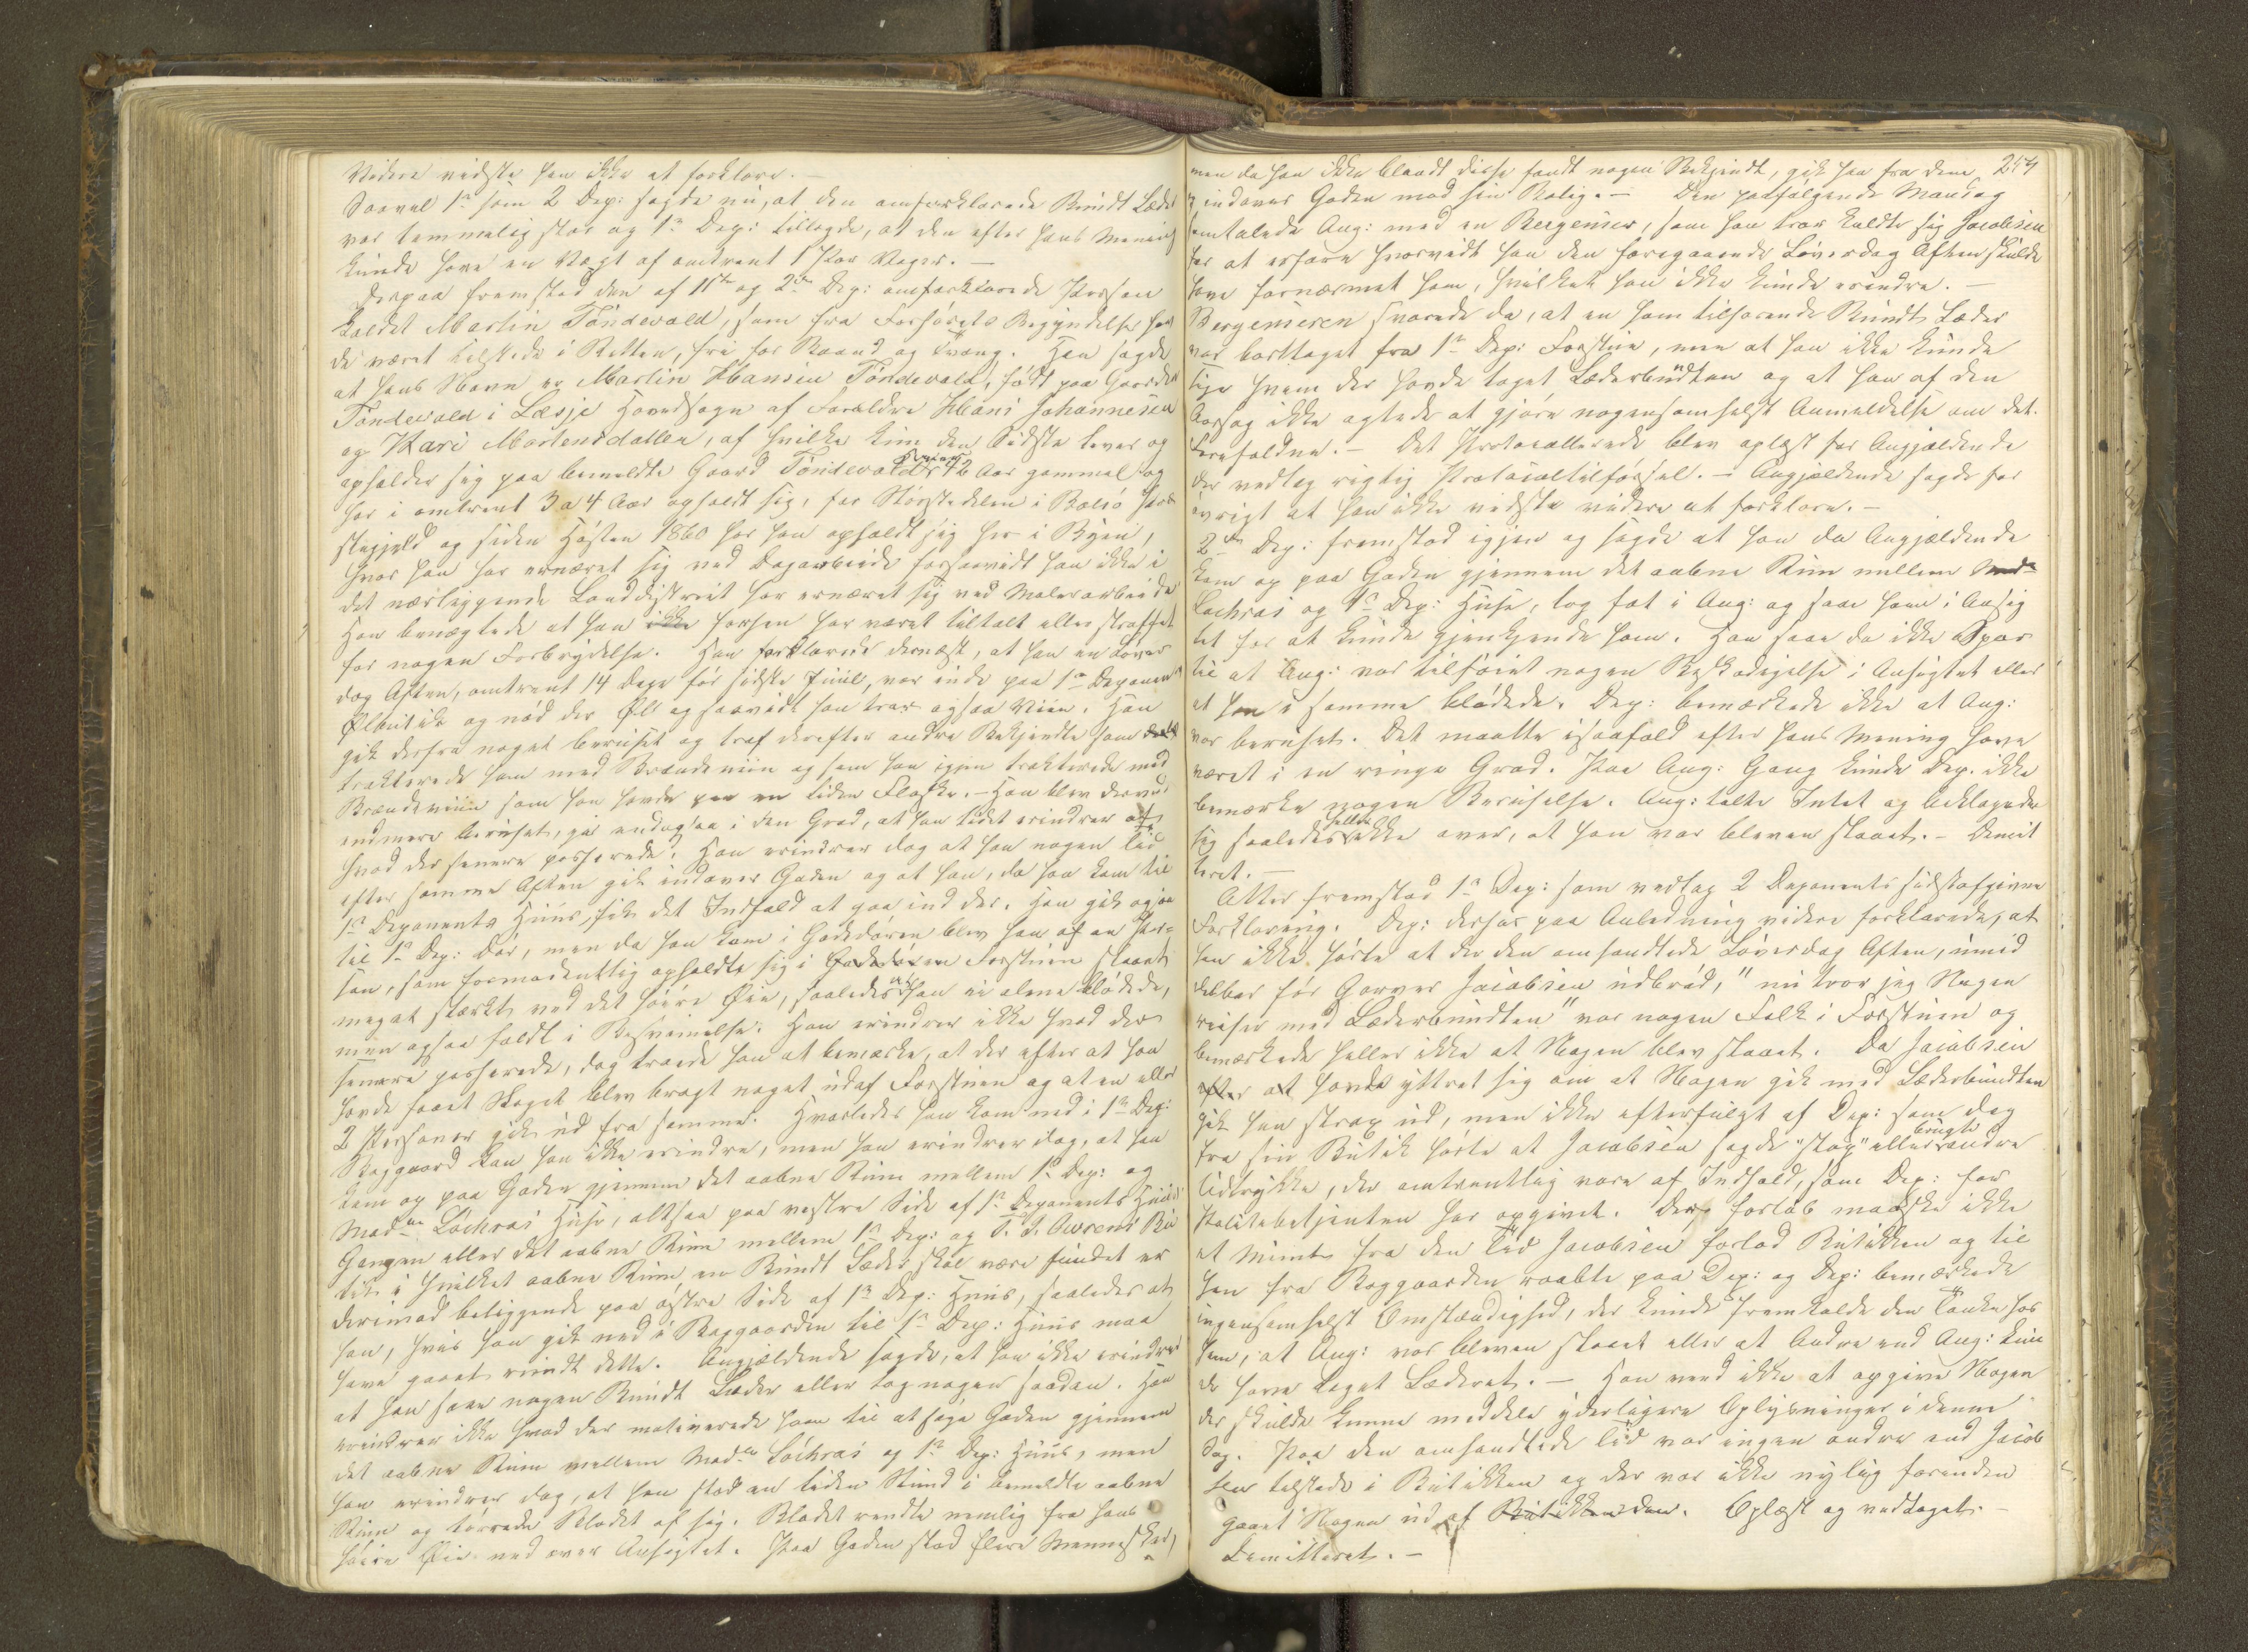 Videre vidste han ikke at forklare. —
Saavel 1ste som 2 Dep: sagde nu, at den omforklarede Bundt Læder
var temmelig stor og 1ste Dep: tillagde, at den efter hans Mening
kunde have en Vægt af omtrent 1 Vog.
Derpaa fremstod den af 1ste og 2den Dep: omforklarede Person
kaldet Martin Töndevold, som fra Forhörets Begyndelse hav
de været tilstede i Retten, fri for Baand og Tvang. Han sagde
at hans Navn er Martin Hansen Töndevold, född paa Gaarden
Töndevold i Læsje Hovedsogn af Forældre Hans Johannesen
og Kari Mortensdatter, af hvilke kun den Sidste lever og
opholder sig paa bemeldte Gaard Töndevold, er 42 Aar gammel og
har i omtrent 3 a 4 Aar opholdt sig, for Störstedelen i Bolsö Præ
stegjeld og siden Hösten 1860 har han opholdt sig her i Byen,
hvor han har ernæret sig ved Dagarbeide forsaavidt han ikke i
det nærliggende Landdistrict har ernæret sig ved Malerarbeide
Han benægtede at han ikke forhen har været tiltalt eller straffet
for nogen Forbrydelse. Han forklarede dernæst, at han en Löver
dag Aften, omtrent 14 Dage för sidste Juul, var inde paa 1ste Deponents
Ølbutik og nöd der Øll og saavidt han tror ogsaa Viin. Han
gik derfra noget beruset og traf derefter andre Bekjendte som
trakterede ham med Brændeviin og som han igjen trakterede med
Brændeviin som han havde paa en liden Flaske. — Han blev derved
endmere beruset, ja endogsaa i den Grad, at han lidet erindrer af
hvad der senere passerede. Han erindrer dog at han nogen Tid
efter samme Aften gik indover Gaden og at han, da han kom til
1ste Deponents Huus, fik det Indfald at gaa ind der. Han gik ogsaa
til 1ste Dep: Dör, men da han kom i Gadedören blev han af en Per-
son, som formodentlig opholdt sig i Gadedören Forstuen slaaet
meget stærkt ved det höire Øie, saaledes at han ei alene blödede,
men ogsaa faldt i Besvimelse. Han erindrer ikke hvad der
senere passerede, dog troede han at bemærke, at der efter at han
havde faaet Slaget blev bragt noget udaf Forstuen og at en eller
2 Personer gik ud fra samme. Hvorledes han kom ned i 1ste Dep:
Baggaard kan han ikke erindre, men han erindrer dog, at han
kom op paa Gaden gjennem det aabne Rum mellem 1ste Dep: og
Madme Löchras Huse, altsaa paa vestre Side af 1ste Deponents Huus
Gangen eller det aabne Rum mellem 1ste Dep: og P. J. Owrens Bu
tik i hvilket aabne Rum en Bundt Læder skal være fundet er
derimod beliggende paa östre Side af 1ste Dep: Huus, saaledes at
han, hvis han gik ned i Baggaarden til 1ste Dep: Huus maa
have gaaet rundt dette. Angjældende sagde, at han ikke erindrer
at han saae nogen Bundt Læder eller tog nogen saadan. Han
erindrer ikke hvad der motiverede ham til at söge Gaden gjennem
det aabne Rum mellem Madme Löchras og 1ste Dep: Huus, men
han erindrer dog, at han stod en liden Stund i bemeldte aabne
Rum og törrede Blodet af sig. Blodet rendte nemlig fra hans
höire Øie ned over Ansigtet. Paa Gaden stod flere Mennesker,
254
men da han ikke blandt disse fandt nogen Bekjendt, gik han fra dem
indover Gaden mod sin Bolig. — Den paafölgende Mandag
omtalede Ang: med en Bergenser, som han tror kaldte sig Jacobsen
for at erfare hvorvidt han den foregaaende Löverdag Aften skulde
have fornærmet ham, hvilket han ikke kunde erindre. —
Bergenseren svarede da, at en ham tilhörende Bundt Læder
var borttaget fra 1ste Dep: Forstue, men at han ikke kunde
sige hvem der havde taget Læderbundten og at han af den
Aarsag ikke agtede at gjöre nogensomhelst Anmeldelse om det
Forefaldne. — Det Protocollerede blev oplæst for Angjældende
der vedtog rigtig Protocoltilförsel. — Angjældende sagde for
övrigt at han ikke vidste videre at forklare. —
2den Dep: fremstod igjen og sagde at han da Angjældende
kom op paa Gaden gjennem det aabne Rum mellem Mad=
Löchras og 1ste Dep: Huse, tog fat i Ang: og saae ham i Ansig
tet for at kunde gjenkjende ham. Han saae da ikke Spor
til at Ang: var tilföiet nogen Beskadigelse i Ansigtet eller
at han i samme blödede. Dep: bemærkede ikke at Ang:
var beruset. Det maatte isaafald efter hans Mening have
været i en ringe Grad. Paa Ang: Gang kunde Dep. ikke
bemærke nogen Beruselse. Ang: talte Intet og beklagede
sig saaledes heller ikke over, at han var bleven slaaet. — Demit
teret. —
Atter fremstod 1ste Dep: som vedtog 2 Deponents sidstafgivne
Forklaring. Dep: derhos paa Anledning videre forklarede, at
han ikke hörte at der den omhandlede Löverdag Aften, umid
delbar för Garver Jacobsen udbröd, "nu tror jeg Nogen
reiser med Læderbundten" var nogen Folk i Forstuen og
bemærkede heller ikke at Nogen blev slaaet. Da Jacobsen
efter at havde yttret sig om at Nogen gik med Læderbundten
gik han strax ud, men ikke efterfulgt af Dep: som dog
fra sin Butik hörte at Jacobsen sagde "stop" eller brugte andre
Udtrykke, der omtrentlig vare af Indhold, som Dep: for
Politibetjenten har opgivet. Der forlöb maaske ikke
et Minut fra den Tid Jacobsen forlod Butikken og til
han fra Baggaarden raabte paa Dep: og Dep: bemærkede
ingensomhelst Omstændighed, der kunde fremkalde den Tanke hos
ham, at Ang: var bleven slaaet eller at Andre end Ang: kun
de have taget Læderet. — Han veed ikke at opgive Nogen
der skulde kunne meddele yderligere Oplysninger i denne
Sag. Paa den omhandlede Tid var ingen andre end Jacob
sen tilstede i Butikken og der var ikke nylig forinden
gaaet Nogen ud af Butikken den. Oplæst og vedtaget. —
Demitteret. —